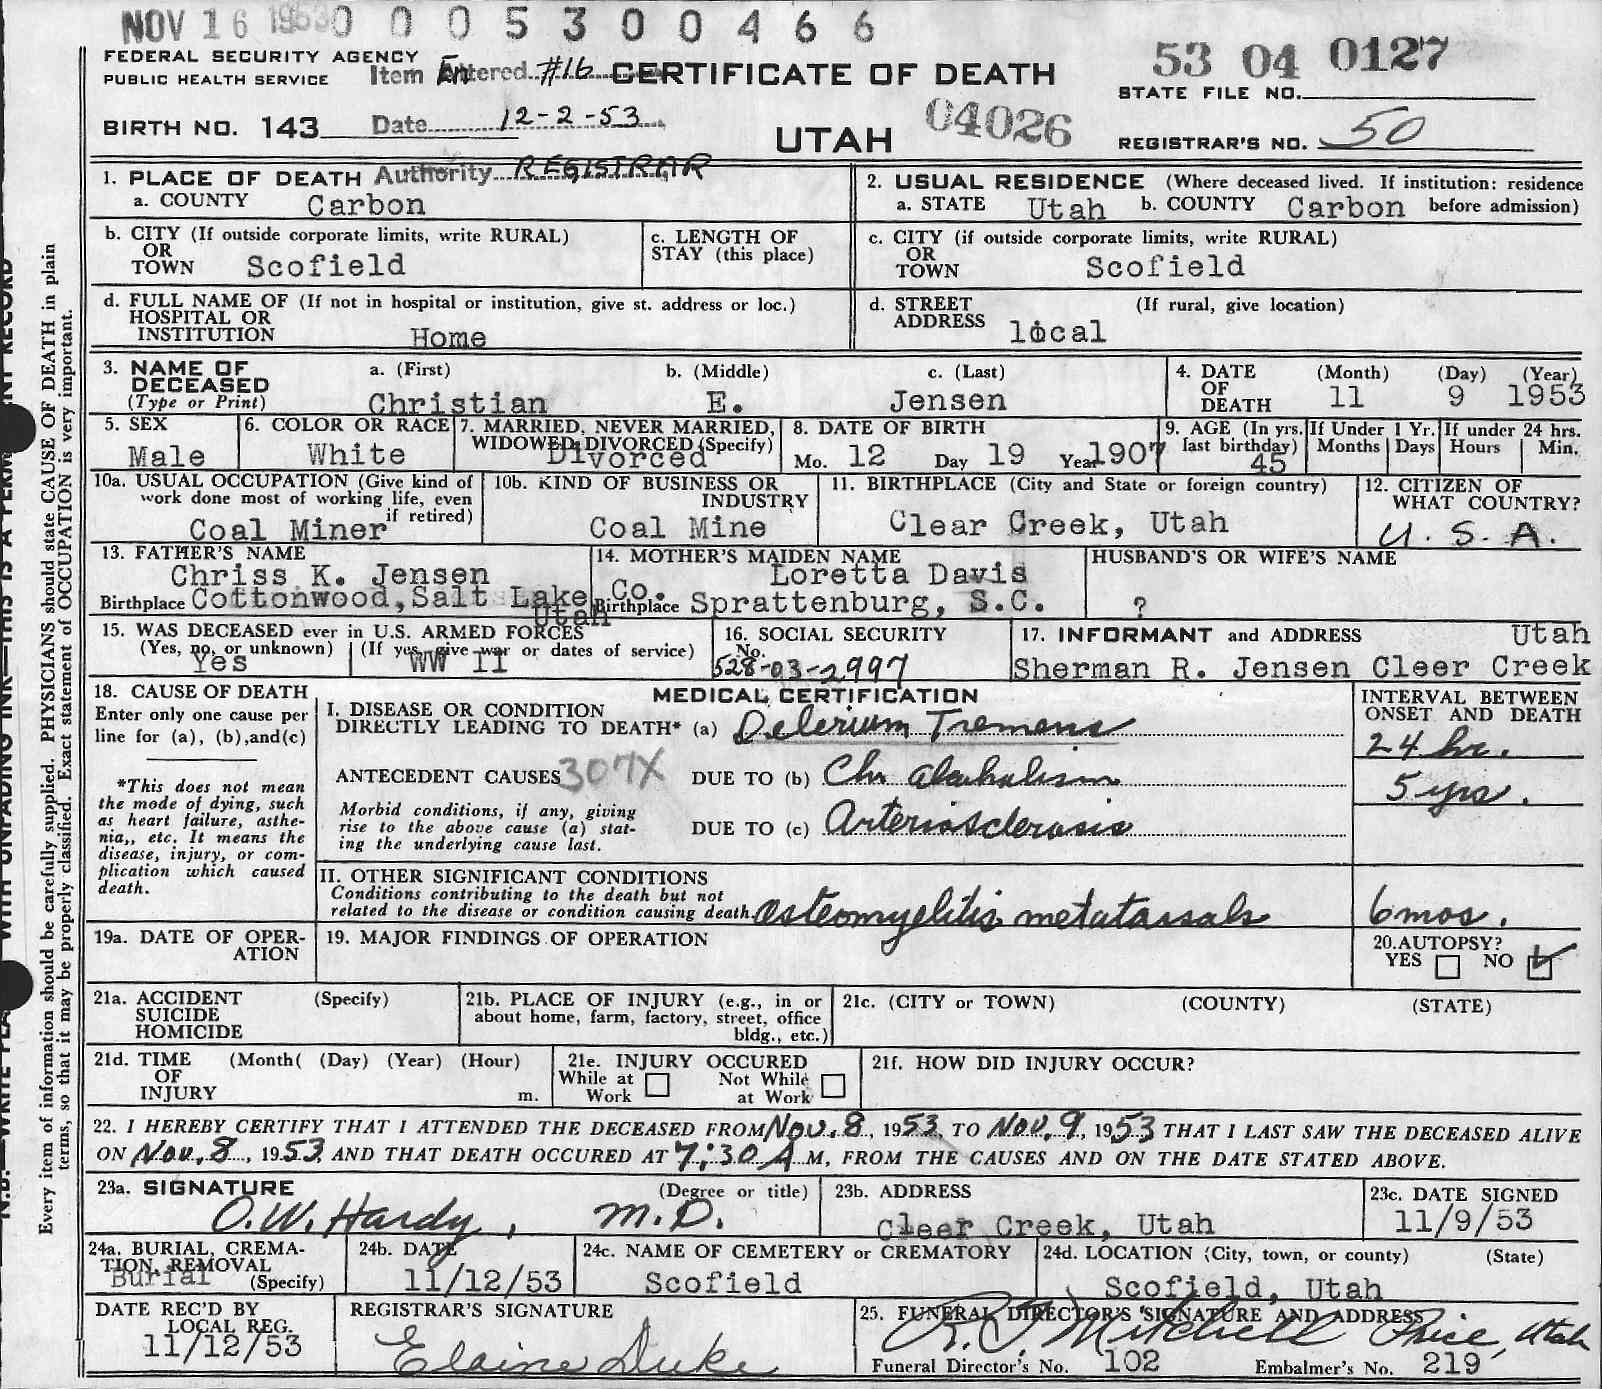 NOV 16 1953 0 0 0 5 3 0 0 4 6 6
FEDERAL SECURITY AGENCY
PUBLIC HEALTH SERVICE
Item Entered #16
CERTIFICATE OF DEATH
53 04 0127
STATE FILE NO.
BIRTH NO. 143
Date 12-2-53
UTAH
04026
REGISTRAR'S NO. 50
Authority REGISTRAR
1. PLACE OF DEATH
a. COUNTY Carbon
2. USUAL RESIDENCE (Where deceased lived. If institution: residence before admission)
a. STATE Utah b. COUNTY Carbon
b. CITY (If outside corporate limits, write RURAL)
OR
TOWN Scofield
c. LENGTH OF
STAY (this place)
c. CITY (if outside corporate limits, write RURAL)
OR
TOWN Scofield
d. FULL NAME OF (If not in hospital or institution, give st. address or loc.)
HOSPITAL OR
INSTITUTION Home
d. STREET (If rural, give location)
ADDRESS local
3. NAME OF
DECEASED
(Type or Print)
a. (First) b. (Middle) c. (Last)
Christian E. Jensen
4. DATE
OF
DEATH
(Month) (Day) (Year)
11 9 1953
5. SEX
Male
6. COLOR OR RACE
White
7. MARRIED, NEVER MARRIED,
WIDOWED, DIVORCED (Specify)
Divorced
8. DATE OF BIRTH
Mo. 12 Day 19 Year 1907
9. AGE (In yrs.
last birthday)
45
If Under 1 Yr.
Months Days
If under 24 hrs.
Hours Min.
10a. USUAL OCCUPATION (Give kind of
work done most of working life, even
if retired)
Coal Miner
10b. KIND OF BUSINESS OR
INDUSTRY
Coal Mine
11. BIRTHPLACE (City and State or foreign country)
Clear Creek, Utah
12. CITIZEN OF
WHAT COUNTRY?
U. S. A.
13. FATHER'S NAME
Chriss K. Jensen
Birthplace Cottonwood, Salt Lake Co.
Utah
14. MOTHER'S MAIDEN NAME
Loretta Davis
Birthplace Sprattenburg, S.C.
HUSBAND'S OR WIFE'S NAME
?
15. WAS DECEASED ever in U.S. ARMED FORCES
(Yes, no, or unknown) (If yes, give war or dates of service)
Yes WW II
16. SOCIAL SECURITY
No.
528-03-2997
17. INFORMANT and ADDRESS Utah
Sherman R. Jensen Cleer Creek
18. CAUSE OF DEATH
Enter only one cause per
line for (a), (b), and (c)
*This does not mean
the mode of dying, such
as heart failure, asthe-
nia,, etc. It means the
disease, injury, or com-
plication which caused
death.
MEDICAL CERTIFICATION
I. DISEASE OR CONDITION
DIRECTLY LEADING TO DEATH* (a) Delerium Tremens
ANTECEDENT CAUSES 307X DUE TO (b) Chr alcoholism
Morbid conditions, if any, giving
rise to the above cause (a) stat-
ing the underlying cause last.
DUE TO (c) Arteriosclerosis
INTERVAL BETWEEN
ONSET AND DEATH
24 hr.
5 yrs.
II. OTHER SIGNIFICANT CONDITIONS
Conditions contributing to the death but not
related to the disease or condition causing death. Osteomyelitis metatassals
6 mos.
19a. DATE OF OPER-
ATION
19. MAJOR FINDINGS OF OPERATION
20. AUTOPSY?
YES NO
21a. ACCIDENT (Specify)
SUICIDE
HOMICIDE
21b. PLACE OF INJURY (e.g., in or
about home, farm, factory, street, office
bldg., etc.)
21c. (CITY or TOWN) (COUNTY) (STATE)
21d. TIME (Month( (Day) (Year) (Hour)
OF
INJURY m.
21e. INJURY OCCURED
While at Not While
Work at Work
21f. HOW DID INJURY OCCUR?
22. I HEREBY CERTIFY THAT I ATTENDED THE DECEASED FROM Nov. 8, 1953, TO Nov. 9, 1953 THAT I LAST SAW THE DECEASED ALIVE
ON Nov. 8, 1953, AND THAT DEATH OCCURED AT 7:30 A M, FROM THE CAUSES AND ON THE DATE STATED ABOVE.
23a. SIGNATURE (Degree or title)
O.W. Hardy, M.D.
23b. ADDRESS
Cleer Creek, Utah
23c. DATE SIGNED
11/9/53
24a. BURIAL, CREMA-
TION, REMOVAL
Burial (Specify)
24b. DATE
11/12/53
24c. NAME OF CEMETERY or CREMATORY
Scofield
24d. LOCATION (City, town, or county) (State)
Scofield, Utah
DATE REC'D BY
LOCAL REG.
11/12/53
REGISTRAR'S SIGNATURE
Elaine Duke
25. FUNERAL DIRECTOR'S SIGNATURE AND ADDRESS
Mitchell Price, Utah
Funeral Director's No. 102 Embalmer's No. 219
Every item of information should be carefully supplied. PHYSICIANS should state CAUSE OF DEATH in plain
terms, so that it may be properly classified. Exact statement of OCCUPATION is very important.